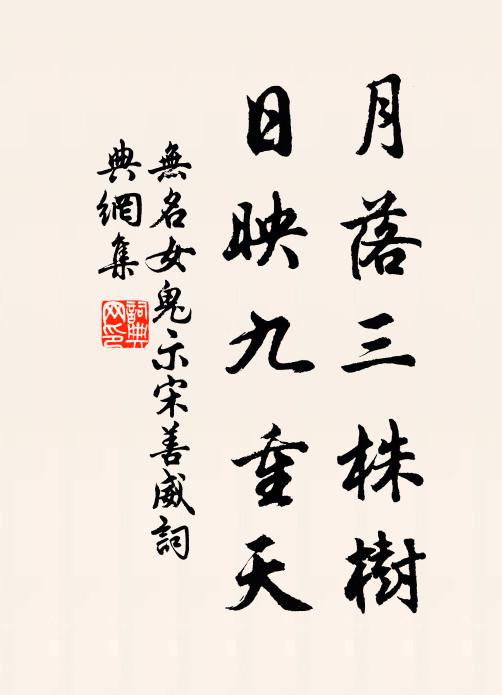 月落三株樹
日映九重天
無名女鬼示宋善威詞
典網集
詞典
网印